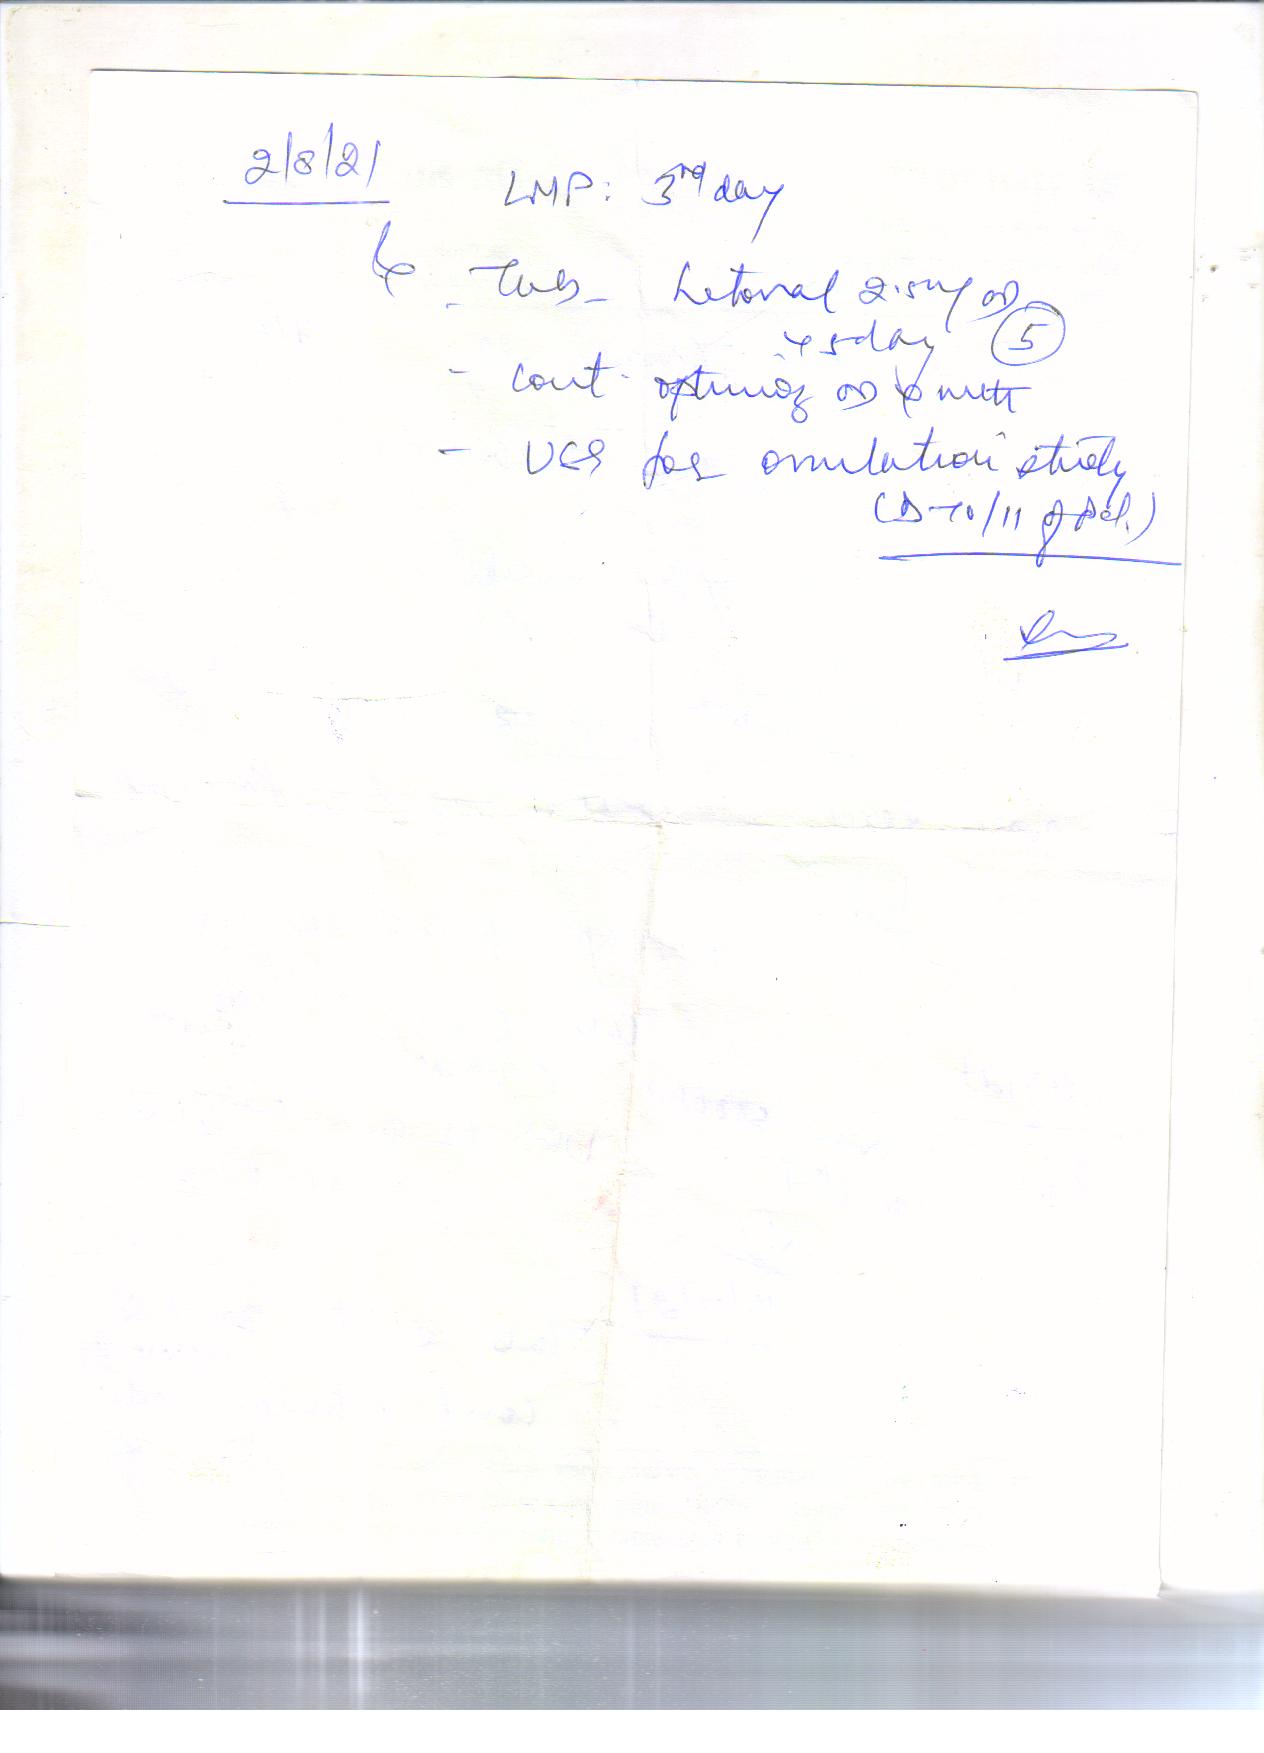 2/8/21
LMP: 3rd day
- Tab- Letoval 2.5mg OD
x 5day (5)
- Cont. OD
- USG for ovulation study
(D-10/11 of